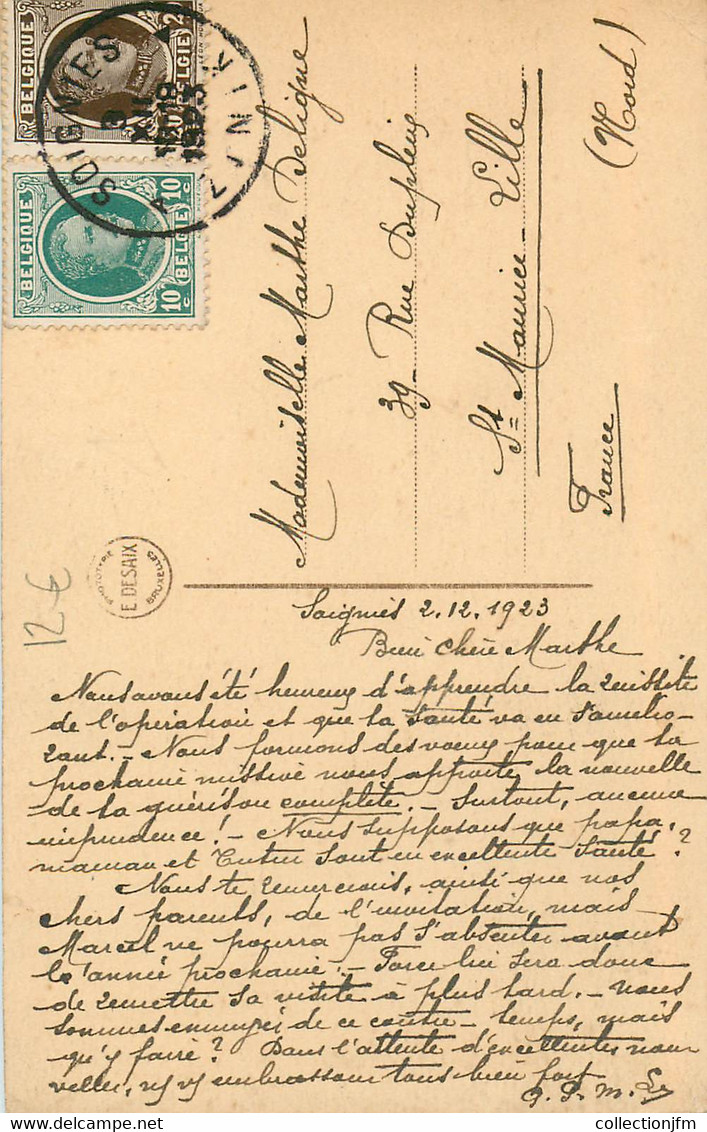 BELGIQUE
BELGIE
SOIGNIES
3
XII
18
1923
ZINNIK
BELGIQUE
10 c
10 c
BELGIE
Mademoiselle Marthe Deligne
39 - Rue Dupleix
St = Maurice - Lille
(Nord)
France
PHOTOTYPIE
E DESAIX
BRUXELLES
12 €
Soignies 2.12.1923
Bien chère Marthe
Nous avons été heureux d'apprendre la réussite
de l'opération et que ta santé va en s'amélio-
rant. - Nous formons des voeux pour que ta
prochaine missive nous apporte la nouvelle
de ta guérison complète. - Surtout, aucune
imprudence ! - Nous supposons que papa,
maman et sont en excellente santé ?
Nous te remercions, ainsi que nos
chers parents, de l'invitation, mais
Marcel ne pourra pas s'absenter avant
l'année prochaine ! - Force lui sera donc
de remettre sa visite à plus tard. - Nous
sommes ennuyés de ce contre-temps, mais
qu'y faire ? Dans l'attente d'excellentes nou-
velles, ns vs embrassons tous bien fort